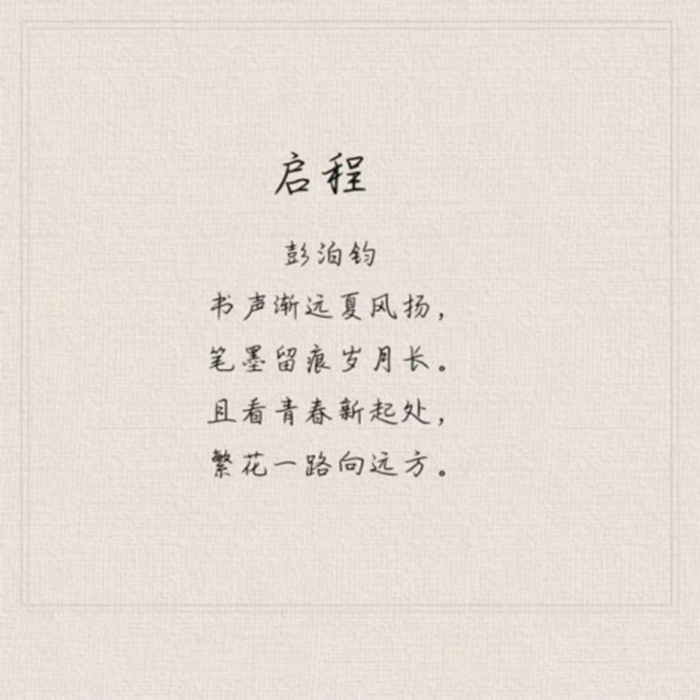 启程
彭泊钧
书声渐远夏风扬，
笔墨留痕岁月长。
且看青春新起处，
繁花一路向远方。